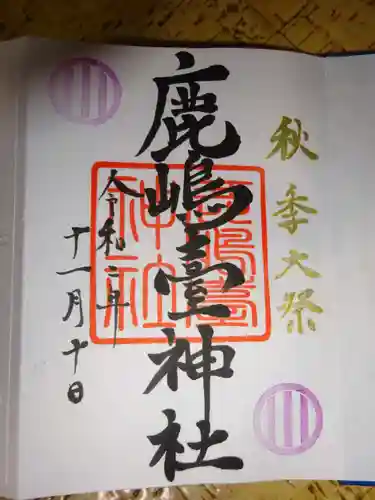 秋季大祭
鹿嶋臺神社
鹿嶋臺神社
令和二年
十一月十日